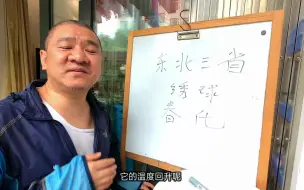 东北三省
绣球
春化
它的温度回升呢